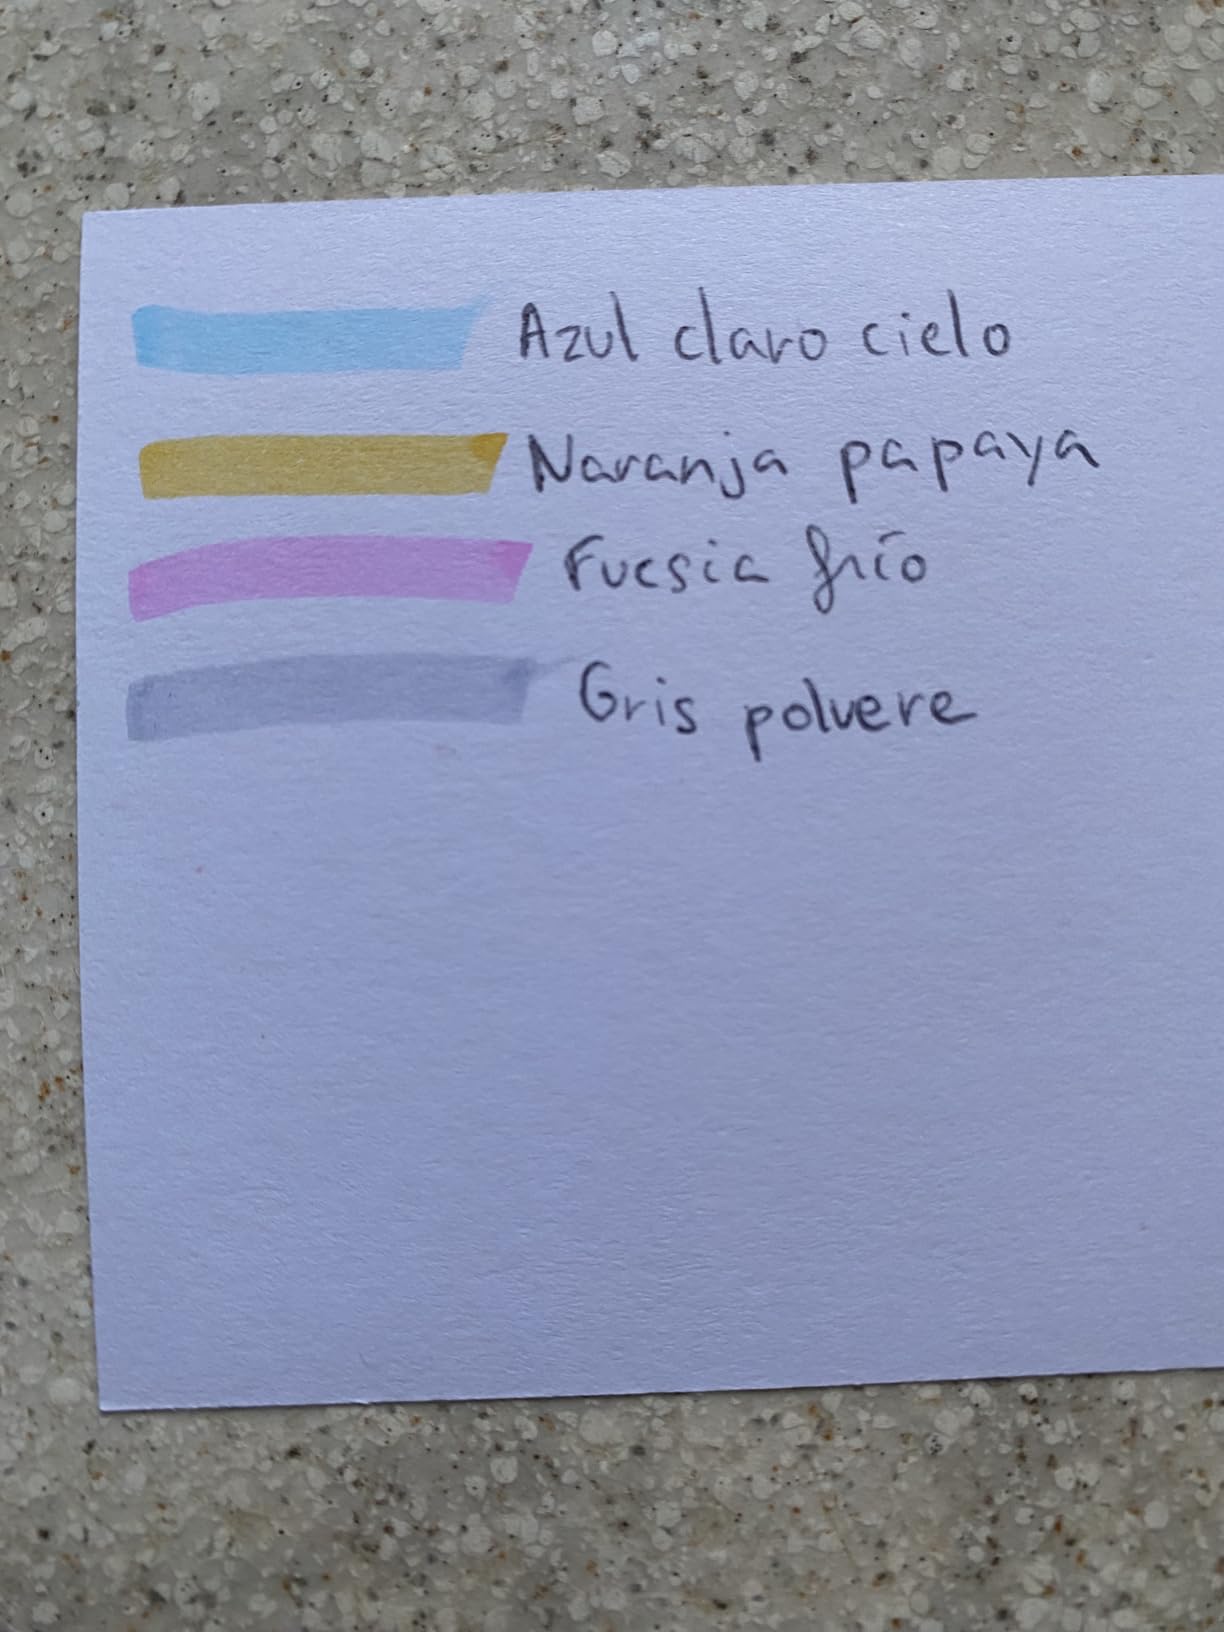 Azul claro cielo
Naranja papaya
Fucsia frío
Gris polvere